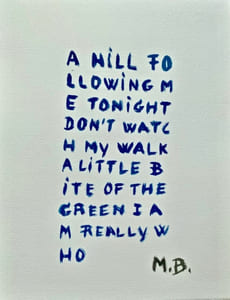 A HILL FO
LLOWING M
E TONIGHT
DON'T WATC
H MY WALK
A LITTLE B
ITE OF THE
GREEN I A
M REALLY W
HO
M.B.